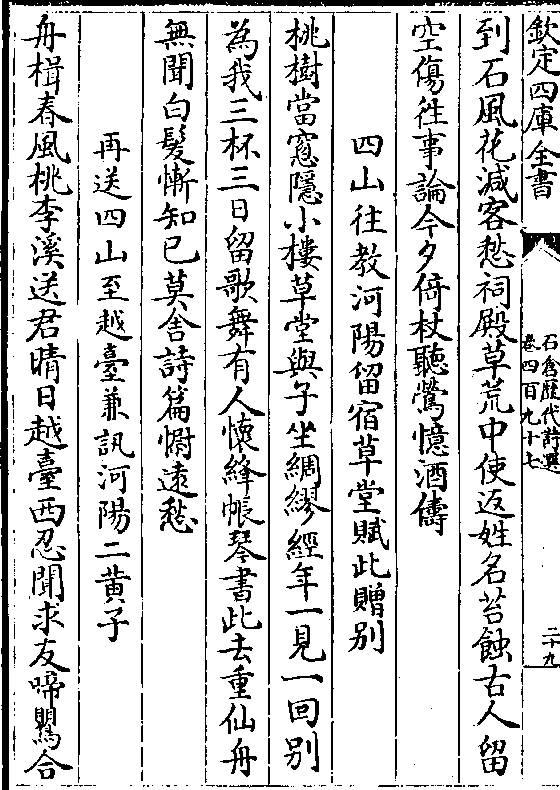 欽定四庫全書
石倉歷代詩選
卷四百九十七
二十九
到石風花減客愁祠殿草荒中使返姓名苔蝕古人留
空傷往事論今夕倚杖聽鶯憶酒儔
四山往教河陽留宿草堂賦此贈別
桃樹當窓隱小樓草堂與子坐綢繆經年一見一回別
為我三杯三日留歌舞有人懷絳帳琴書此去重仙舟
無聞白髮慚知已莫舍詩篇慰遠愁
再送四山至越臺兼訊河陽二黃子
舟楫春風桃李溪送君晴日越臺西忍聞求友啼鸎合